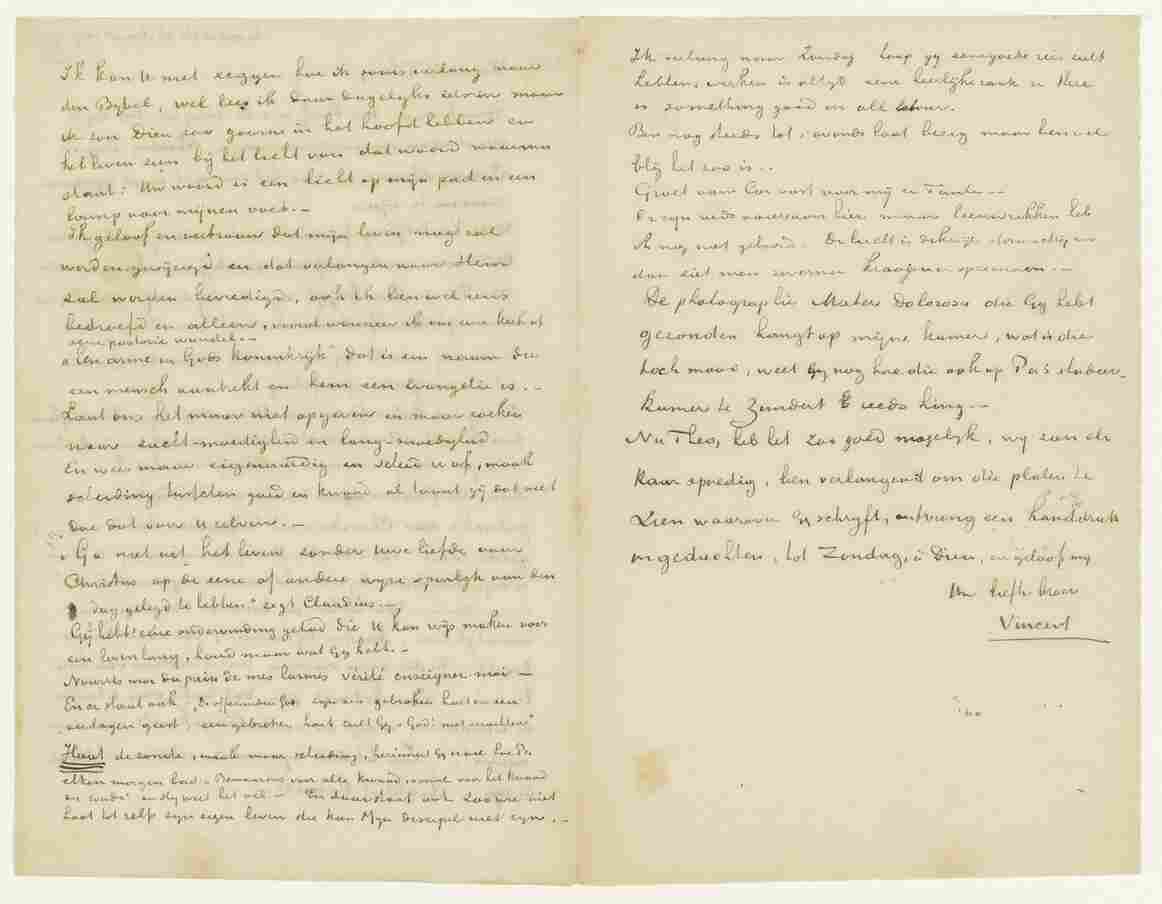 Ik kan U niet zeggen hoe ik soms verlang naar
den Bybel, wel lees ik daar dagelyks in maar
ik zou dien zoo gaarne in het hoofd hebben en
het leven zien bij het licht van dat woord waarvan
staat: Uw woord is een licht op mijn pad en een
lamp voor mijnen voet. —
Ik geloof en vertrouw dat mijn leven nog zal
worden gewijzigd en dat verlangen naar Hem
zal worden bevredigd, ook ik ben wel eens
bedroefd en alleen, vooral wanneer ik om eene kerk of
eene pastorie wandel. —
Laat ons het maar niet opgeven en maar zoeken
naar zacht-moedigheid en lang-moedigheid
En wees maar eigenaardig en scheid U af, maak
scheiding tusschen goed en kwaad al laat gij dat niet
doe dat voor U zelven. —
„Ga niet uit het leven zonder Uwe liefde voor
Christus op de eene of andere wyze openlyk aan den
dag gelegd te hebben" zegt Claudius. —
Gij hebt eene ondervinding gehad die U kan wijs maken voor
een leven lang, houd maar wat Gy hebt. —
Nourris moi du pain de mes larmes vérité enseigner moi —
En er staat ook „De offeranden Gods zyn een gebroken hart en een
verslagen geest; een gebroken hart zult Gy o God! niet verachten"
Haat de zonde, maak maar scheiding, herinner Gy nog hoe Pa
elken morgen bad „Bewaar ons voor alle kwaad, vooral voor het kwaad
der zonde" en hy weet het wel — En daar staat ook Zoo wie niet
haat tot zelfs zyn eigen leven die kan Myn Discipel niet zyn. —
Ik verlang naar Zondag hoop gy eene goede reis zult
hebben, werken is altyd eene heerlijke zaak & there
is something good in all labour.
Ben nog steeds tot 's avonds laat bezig maar ben wel
blij het zoo is..
Groet oom Cor vast voor mij en Tante —
Er zyn reeds ooievaars hier maar leeuwrikken heb
ik nog niet gehoord. De lucht is dikwijls stormachtig en
dan ziet men zwermen kraaijen en spreeuwen. —
De photographie Mater Dolorosa die Gy hebt
gezonden hangt op mijne kamer, wat is die
toch mooi, weet Gy nog hoe die ook op Pa's studeer-
kamer te Zundert reeds hing —
Nu Theo, heb het zoo goed mogelijk, wy zien el-
kaar spoedig, ben verlangend om die platen te
Zien waarover Gy schryft, ontvang een handdruk
in gedachten, tot Zondag, à Dieu, en geloof my
Uw liefh. broer
Vincent